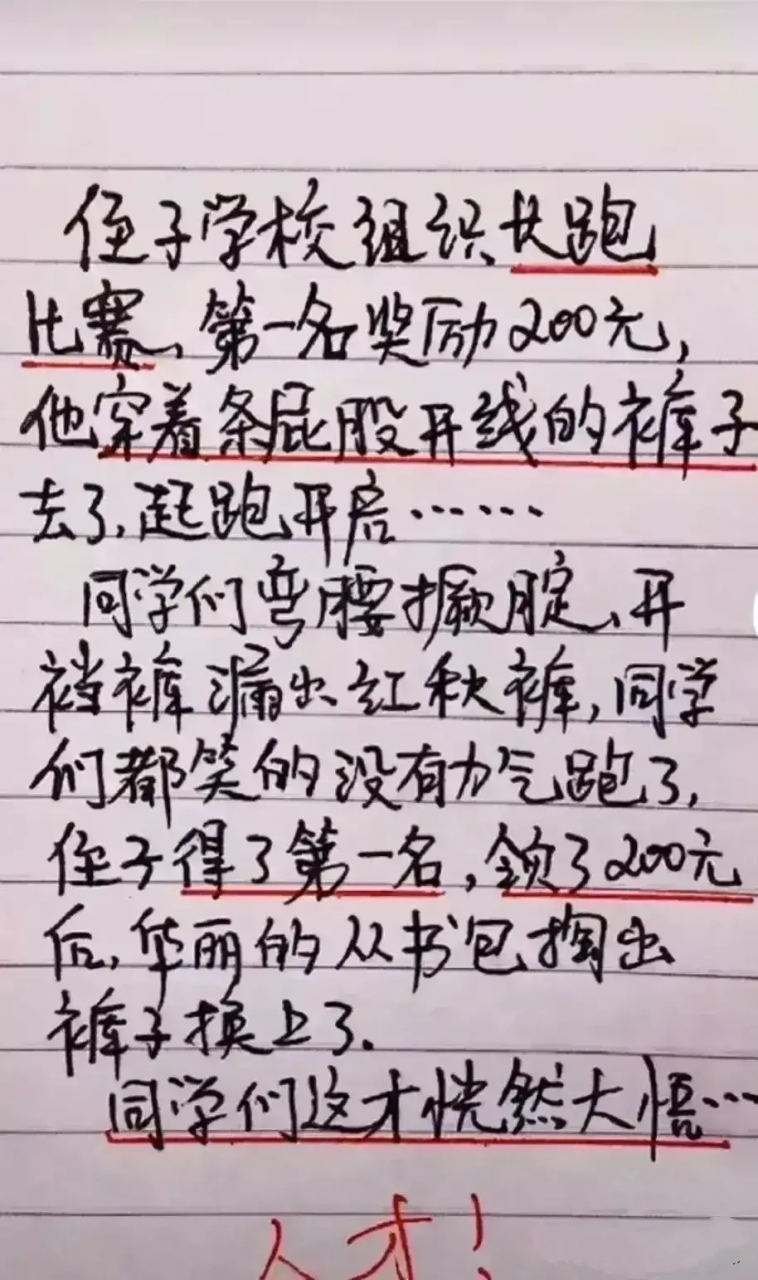 侄子学校组织长跑
比赛,第一名奖励200元,
他穿着条屁股开线的裤子
去了,起跑开启……
同学们弯腰撅腚,开
裆裤漏出红秋裤,同学
们都笑的没有力气跑了,
侄子得了第一名,领了200元
后,华丽的从书包掏出
裤子换上了.
同学们这才恍然大悟…
人才!